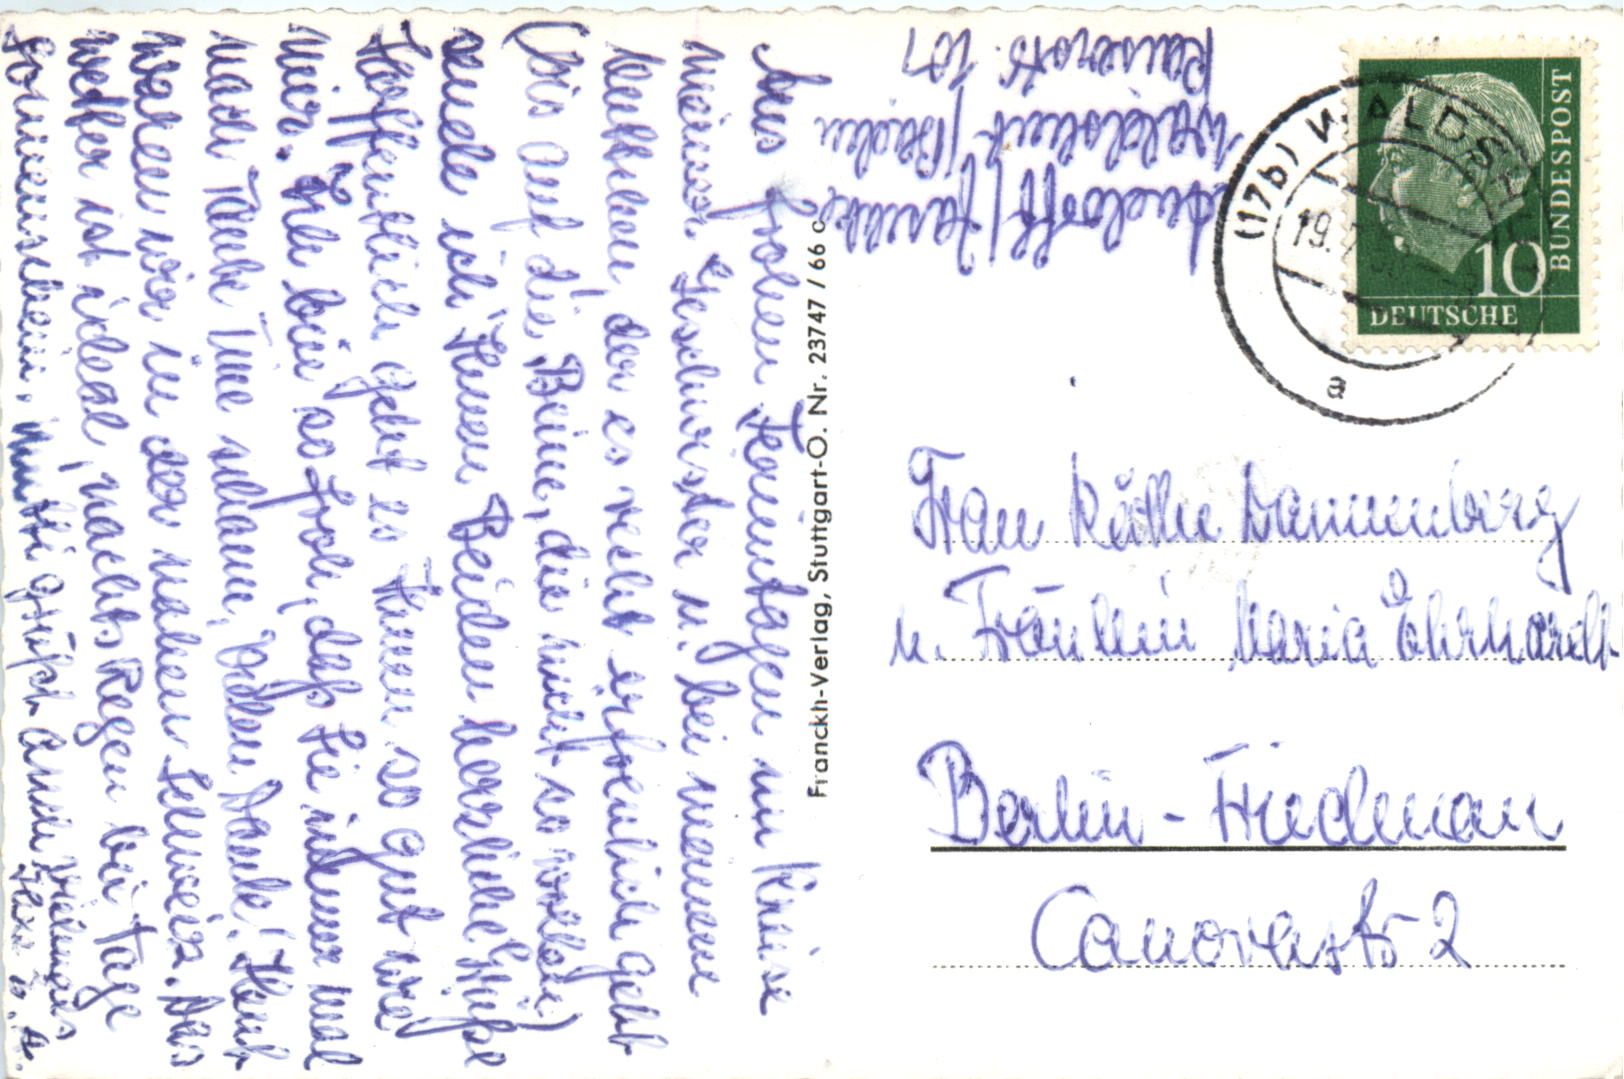 Aus frohen Ferientagen im Kreise
meiner Geschwister u. bei meiner
Mutter, der es recht erfreulich geht
(bis auf die Beine, die nicht so wollen)
sende ich Ihnen Beiden herzliche Grüße
Hoffentlich geht es Ihnen so gut wie
mir. Ich bin so froh, daß Sie immer mal
nach Tante Tine schauen, Vielen Dank! Heute
waren wir in der nahen Schweiz. Das
Wetter ist ideal, nachts Regen bei Tage
Sonnenschein. Mutti grüßt auch vielmals
Ihre
Kaiserstr. 107
Waldshut/Baden
Franckh-Verlag, Stuttgart-O. Nr. 23747 / 66 c
(17b) WALDSHUT
19.
a
10
DEUTSCHE
BUNDESPOST
Frau Käthe Dannenberg
u. Fräulein Maria Ehrhardt
Berlin - Friedenau
Canovastr 2